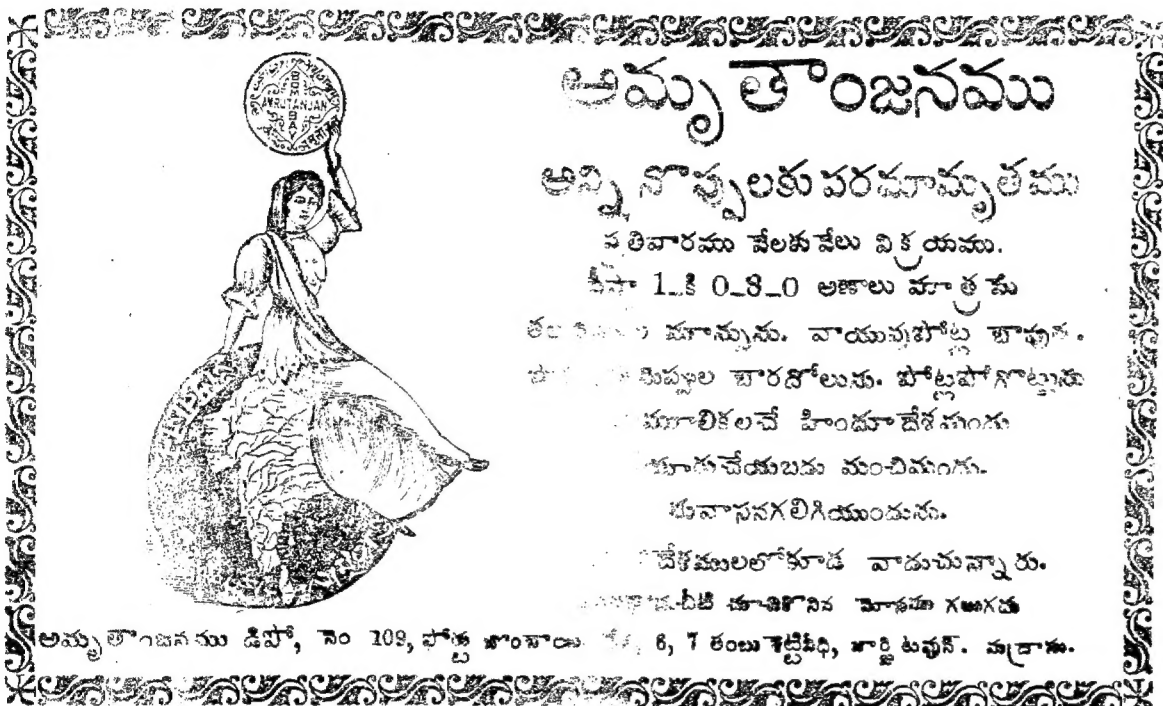 BOMBAY
AMRUTANJAN
అమృతాంజనము
అన్ని నొప్పులకు పరమామృతము
ప్రతివారము వేలకువేలు విక్రయము.
సీసా 1_కి 0_8_0 అణాలు మాత్రమే
మాన్పును. వాయువుపోట్ల బాపును.
పారదోలును. పోట్లపోగొట్టును
మూలికలచే హిందూదేశమందు
చేయుబడు మంచిమందు.
సువాసనగలిగియుండును.
దేశములలోకూడ వాడుచున్నారు.
చీటి చూచికొనిన మోసము గలుగదు
అమృతాంజనము డిపో, నెం 109, పోస్టు బొంబాయి 6, 7 తంబుశెట్టివీధి, జార్జిటవున్. మద్రాసు.